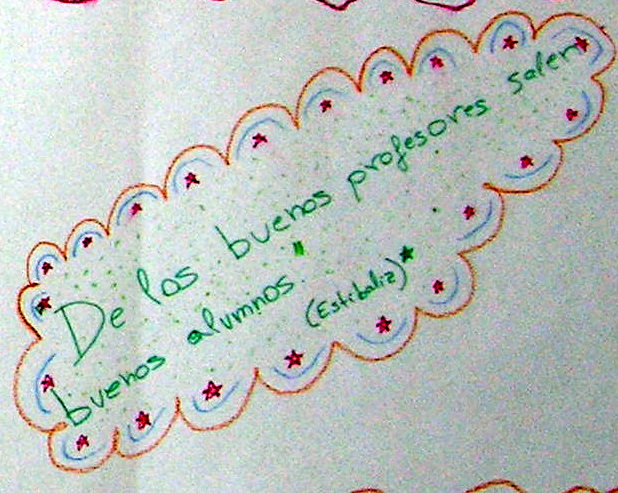 De los buenos profesores salen
buenos alumnos.
(Estibaliz)